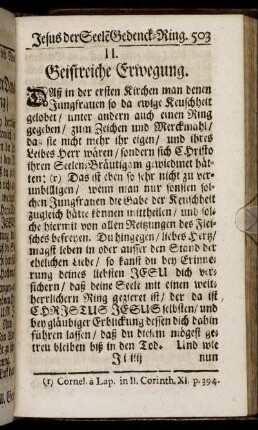 Jesus der Seelẽ Gedenck-Ring. 503
II.
Geistreiche Erwegung.
Daß in der ersten Kirchen man denen
Jungfrauen so da ewige Keuschheit
gelobet / unter andern auch einen Ring
gegeben / zum Zeichen und Merckmahl /
daß sie nicht mehr ihr eigen / und ihres
Leibes Herr wären / sondern sich Christo
ihren Seelen-Bräutigam gewidmet hät-
ten: (r) Das ist eben so sehr nicht zu ver-
unbilligen / wenn man nur sonsten sol-
chen Jungfrauen die Gabe der Keuschheit
zugleich hätte können mittheilen / und sol-
che hiermit von allen Reitzungen des Flei-
sches befreyen. Du hingegen / liebes Hertz /
magst leben in oder ausser den Stand der
ehelichen Liebe / so kanst du bey Erinne-
rung deines liebsten JESU dich ver-
sichern / daß deine Seele mit einen weit
herrlichern Ring gezieret ist / der da ist
CHRISTUS JESUS selbsten / und
bey gläubiger Erblickung dessen dich dahin
führen lassen / daß du diesem mögest ge-
treu bleiben biß in den Tod. Und wie
Ji iiij nun
(r) Cornel. à Lap. in II. Corinth. XI. p. 394.